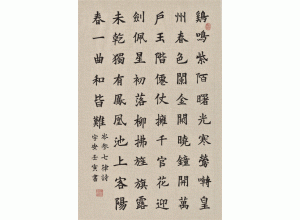 鷄鳴紫陌曙光寒鶯囀皇
州春色闌金闕曉鐘開萬
戶玉階僊仗擁千官花迎
劍佩星初落柳拂旌旗露
未乾獨有鳳凰池上客陽
春一曲和皆難
岑參七律詩
壬寅書